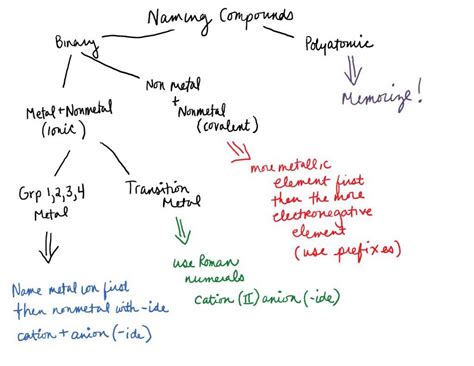 Naming Compounds
Binary
Polyatomic
Memorize!
Metal + Nonmetal
(ionic)
Non metal
+
Nonmetal
(covalent)
more metallic
element first
then the more
electronegative
element
(use prefixes)
Grp 1,2,3,4
Metal
Transition
Metal
Name metal ion first
then nonmetal with -ide
cation + anion (-ide)
use Roman
numerals
cation (II) anion (-ide)